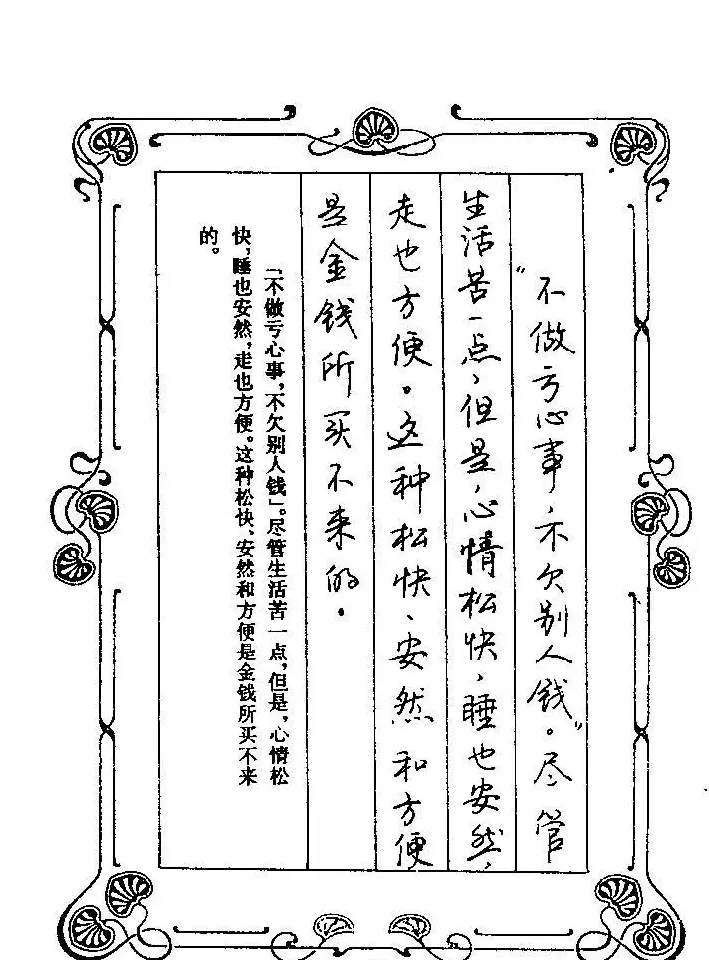 “不做亏心事，不欠别人钱”。尽管
生活苦一点，但是，心情松快，睡也安然，
走也方便。这种松快、安然和方便
是金钱所买不来的。
「不做亏心事，不欠别人钱」。尽管生活苦一点，但是，心情松
快，睡也安然，走也方便。这种松快、安然和方便是金钱所买不来
的。